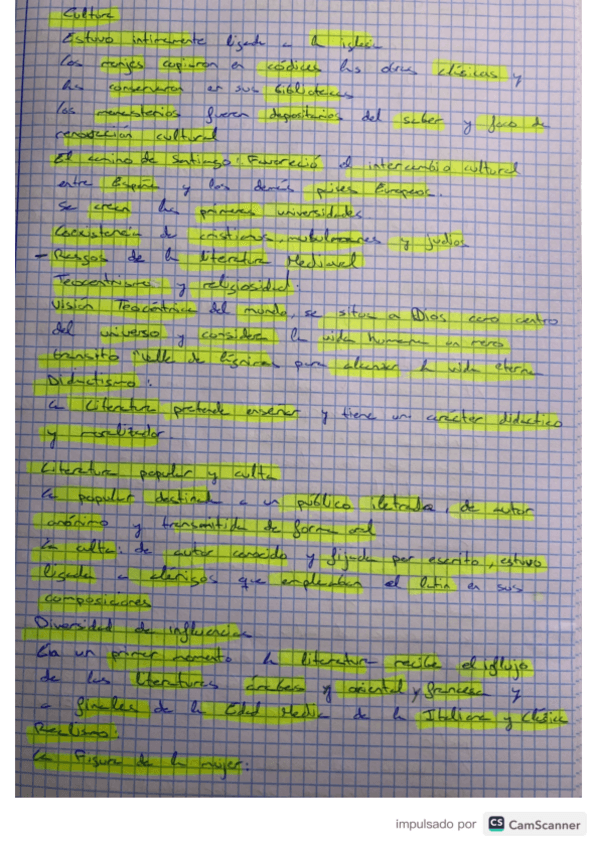 Cultura
Estuvo intimamente ligada a la iglesia
Los monjes copiaron en códices las obras clásicas y
las conservaron en sus bibliotecas
los monasterios fueron depositarios del saber y foco de
renovación cultural
El camino de Santiago: Favoreció el intercambio cultural
entre España y los demás países Europeos.
se crean las primeras universidades
Coexistencia de cristianos, musulmanes y judios
- Rasgos de la literatura Medieval
Teocentrismo y religiosidad:
Visión Teocéntrica del mundo, se situa a Dios como centro
del universo y considera la vida humana un mero
transito "valle de lágrimas para alcanzar la vida eterna
Didactismo:
La literatura pretende enseñar y tiene un carácter didactico
y moralizador.
Literatura popular y culta
La popular destinada a un público iletrado, de autor
anónimo y transmitida de forma oral
La culta: de autor conocido y fijada por escrito, estuvo
ligada a clérigos que empleaban el latín en sus
composiciones
Diversidad de influencias
En un primer momento la literatura recibe el influjo
de las literaturas árabes y oriental y francesa y
a finales de la Edad Media de la Italiana y Clásica
Realismo:
La Figura de la mujer:
impulsado por CS CamScanner